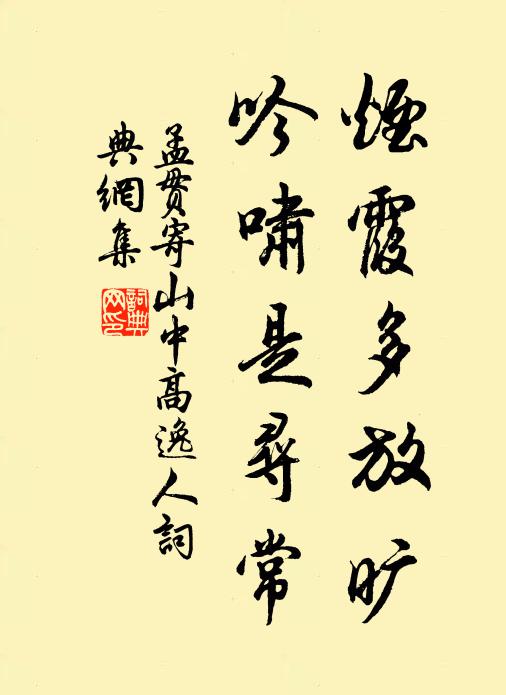 煙霞多放旷
吟嘯是尋常
孟貫寄山中高逸人詞
典網集
詞典
网印